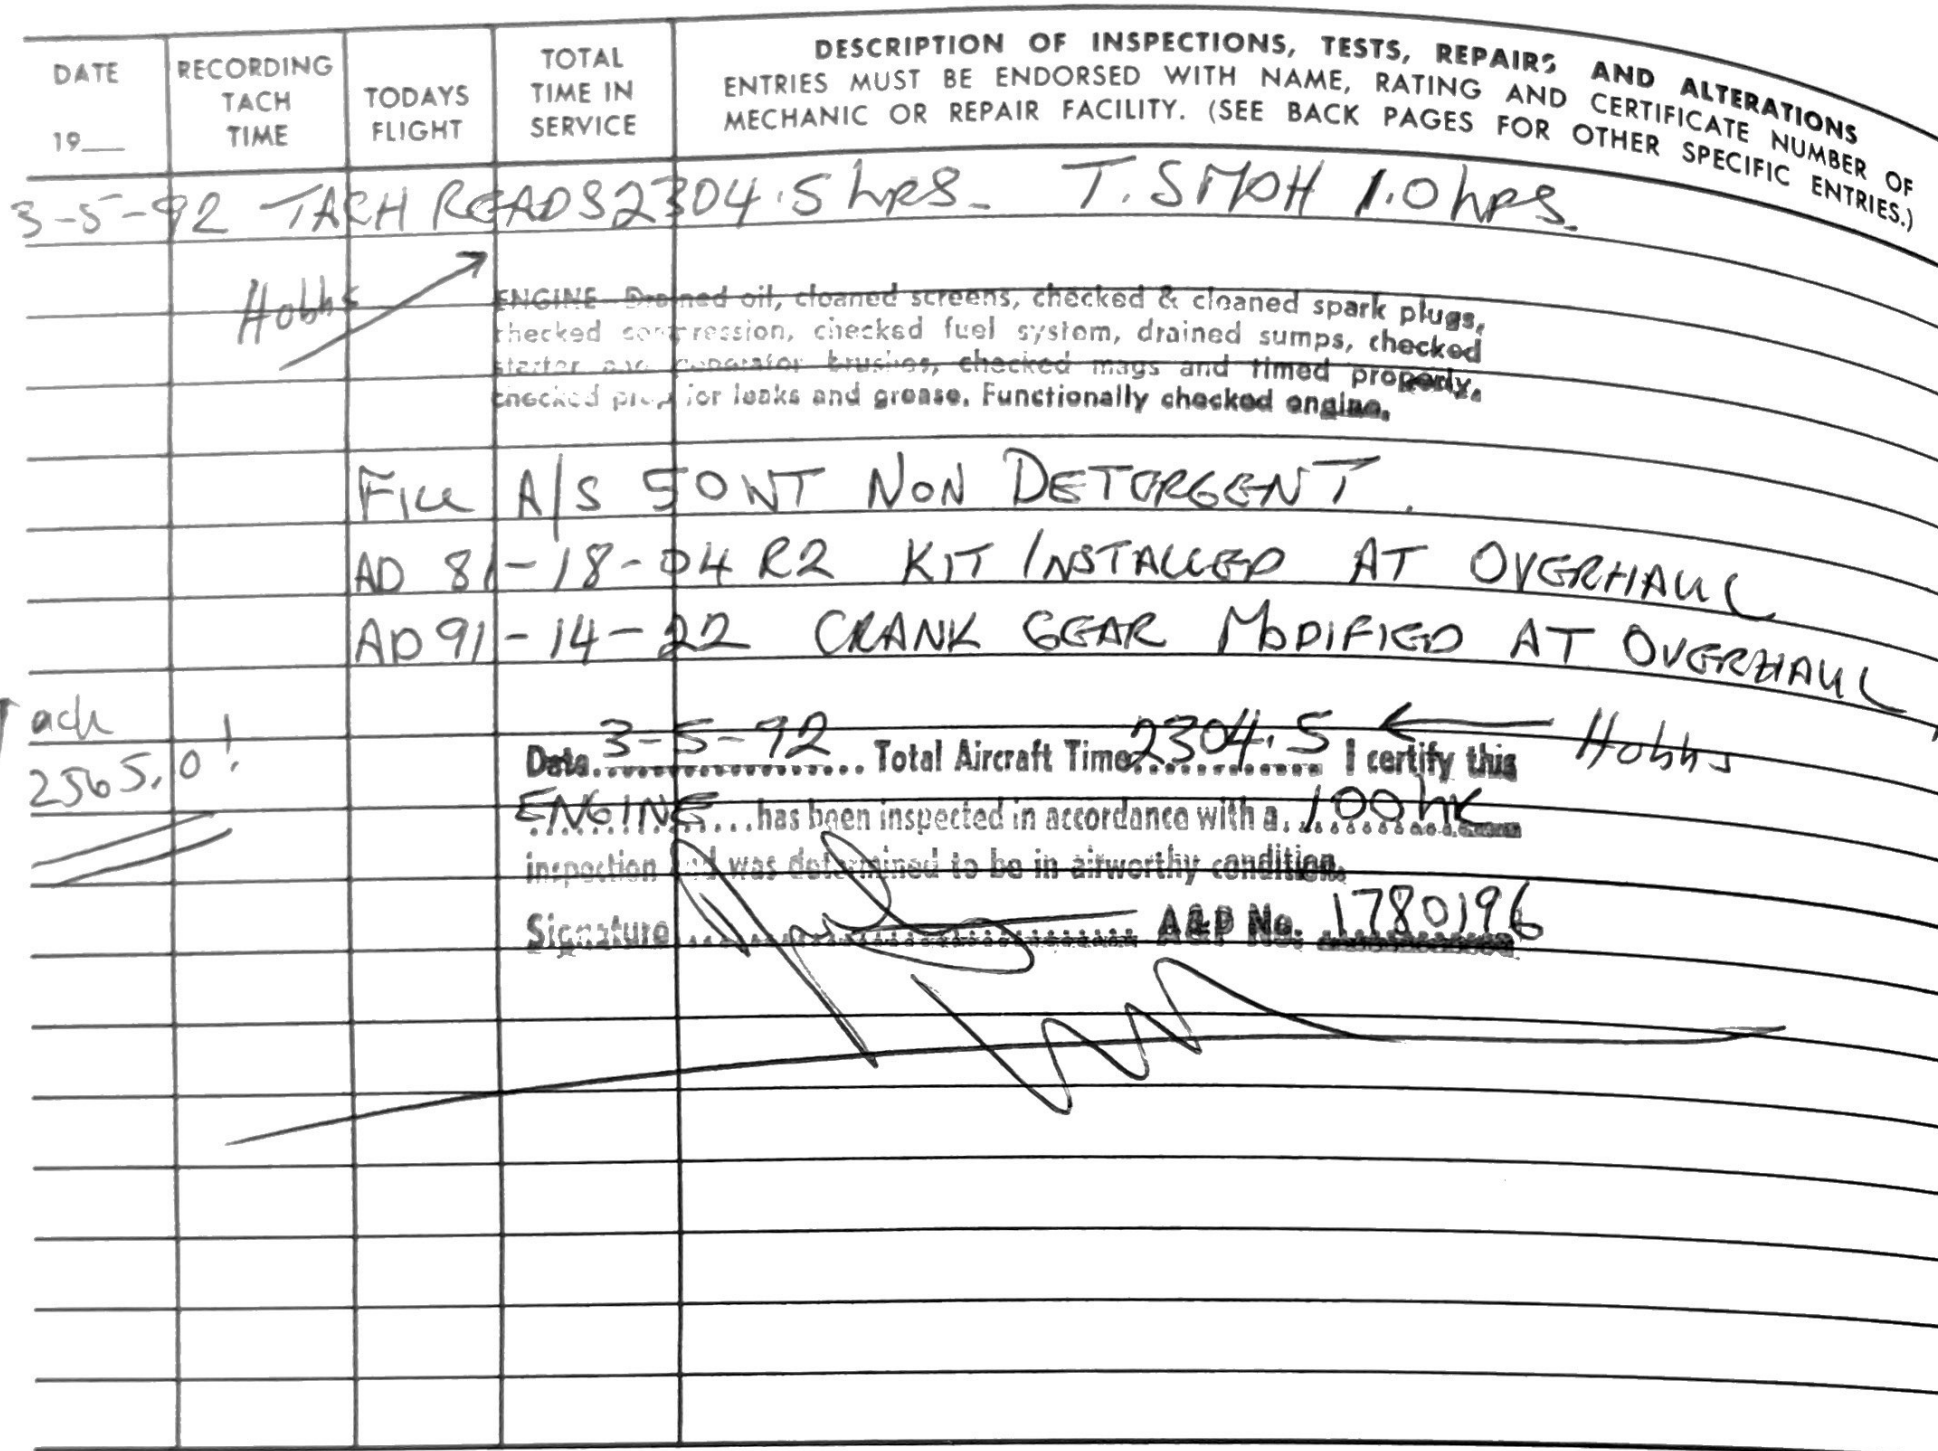 DATE
19__
RECORDING
TACH
TIME
TODAYS
FLIGHT
TOTAL
TIME IN
SERVICE
DESCRIPTION OF INSPECTIONS, TESTS, REPAIRS AND ALTERATIONS
ENTRIES MUST BE ENDORSED WITH NAME, RATING AND CERTIFICATE NUMBER OF
MECHANIC OR REPAIR FACILITY. (SEE BACK PAGES FOR OTHER SPECIFIC ENTRIES.)
3-5-92 TACH READS 2304.5 hrs. T.SMOH 1.0 hrs.
Hobbs
ENGINE Drained oil, cloaned screens, checked & cleaned spark plugs,
checked compression, checked fuel system, drained sumps, checked
starter and generator brushes, checked mags and timed properly,
checked prop for leaks and grease. Functionally checked engine.
Fill A/S 50WT NON DETERGENT.
AD 81-18-04 R2 KIT INSTALLED AT OVERHAUL
AD 91-14-22 CRANK GEAR MODIFIED AT OVERHAUL
Tach
2565.0!
Date 3-5-92 Total Aircraft Time 2304.5 I certify this
Hobbs
ENGINE has been inspected in accordance with a 100 hr
inspection and was determined to be in airworthy condition.
Signature A&P No. 1780196